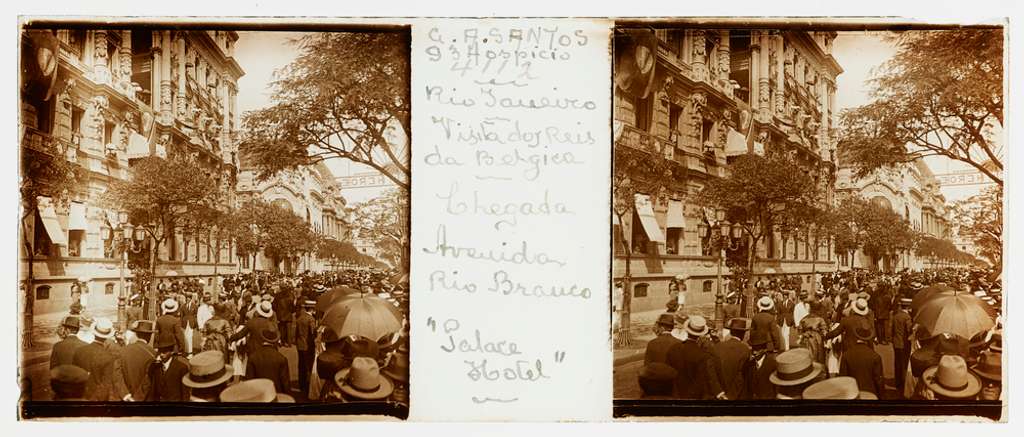 G. A. SANTOS
93 Hospicio
4112
Rio Janeiro
Vista dos Reis
da Belgica
Chegada
Avenida
Rio Branco
"Palace
Hotel"